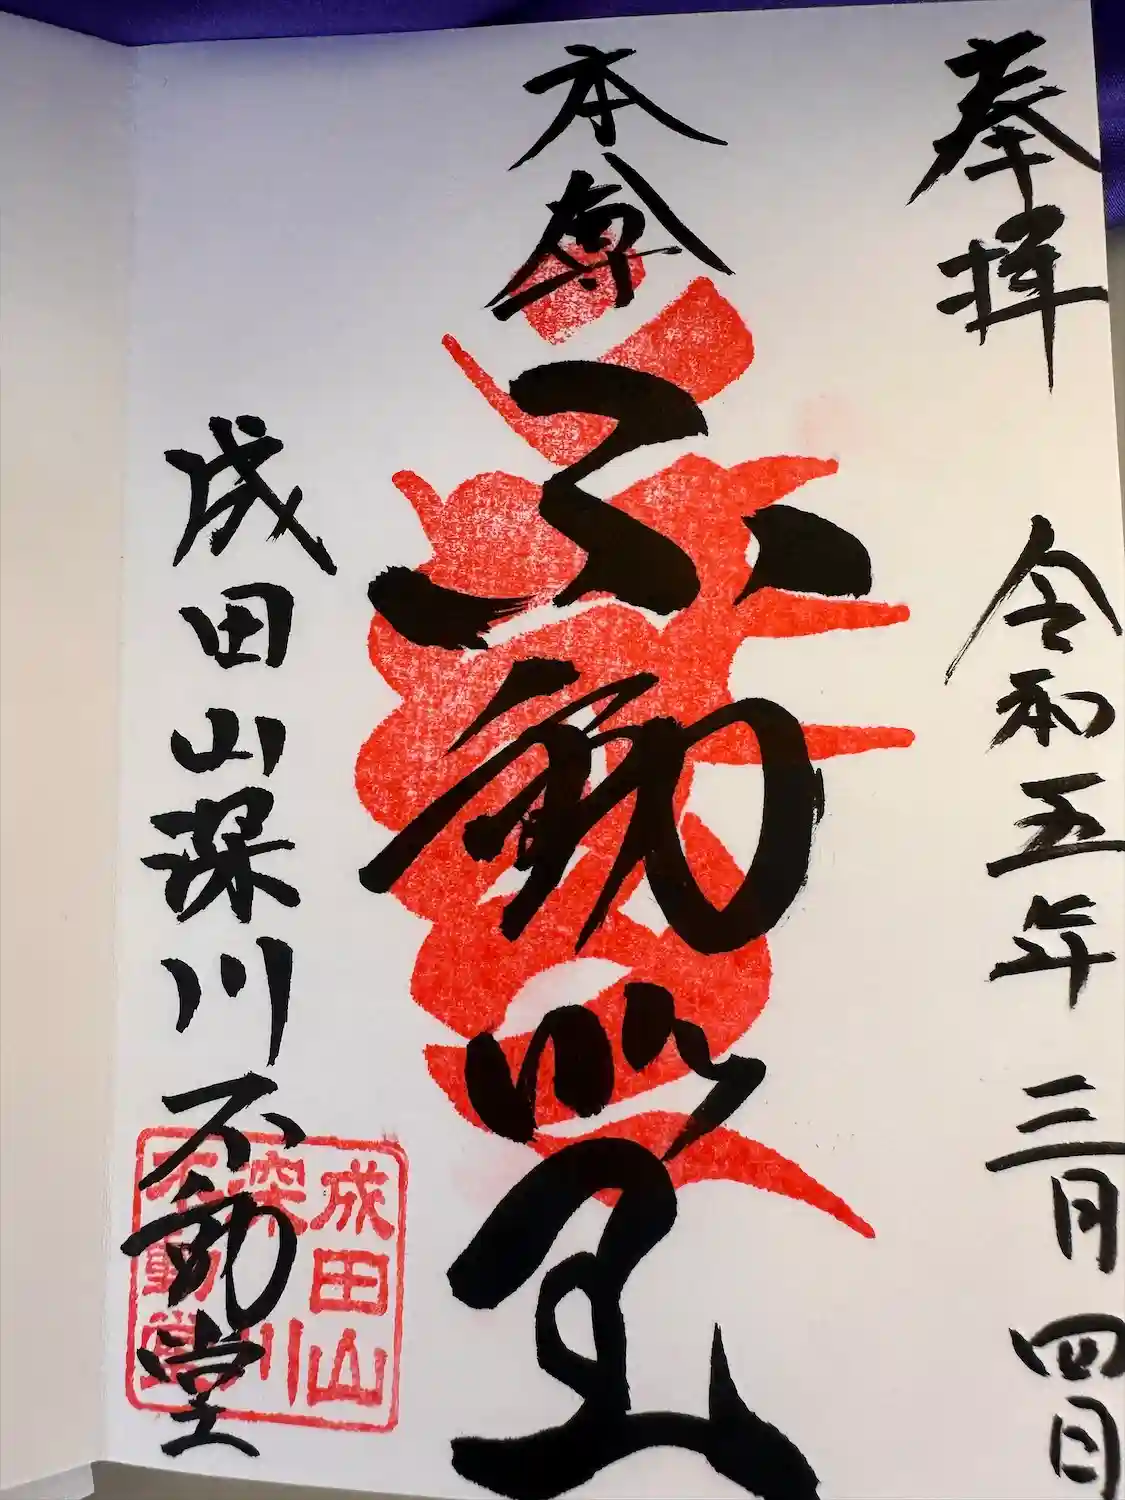 奉拝
令和五年三月四日
本尊
不動堂
成田山深川不動堂
成田山
深川
不動堂